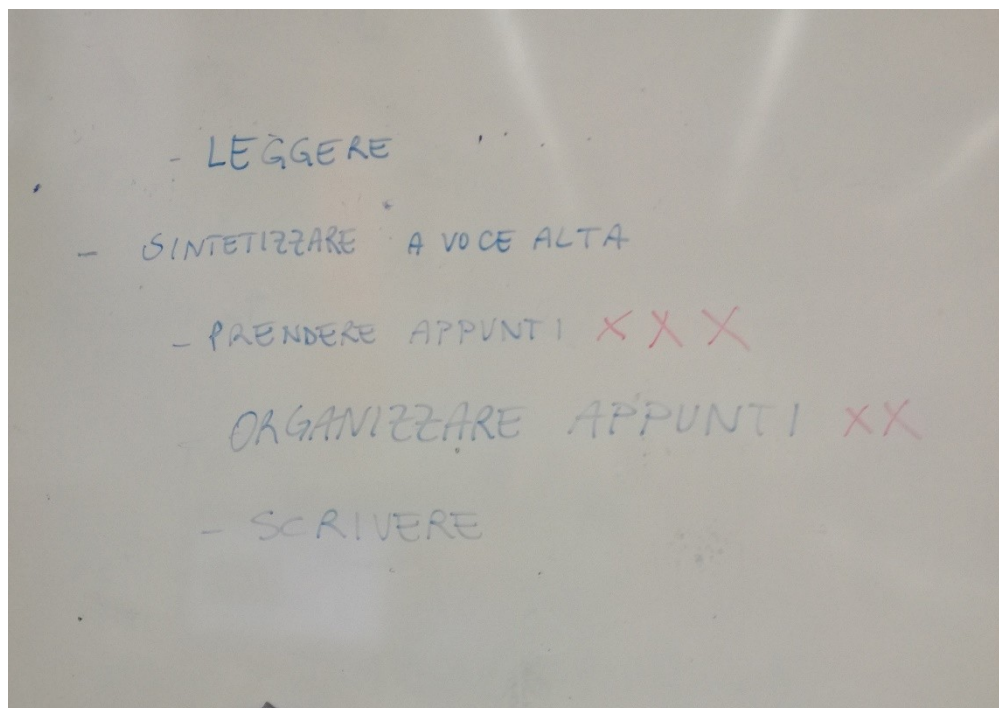 - LEGGERE
- SINTETIZZARE A VOCE ALTA
- PRENDERE APPUNTI X X X
ORGANIZZARE APPUNTI X X
- SCRIVERE